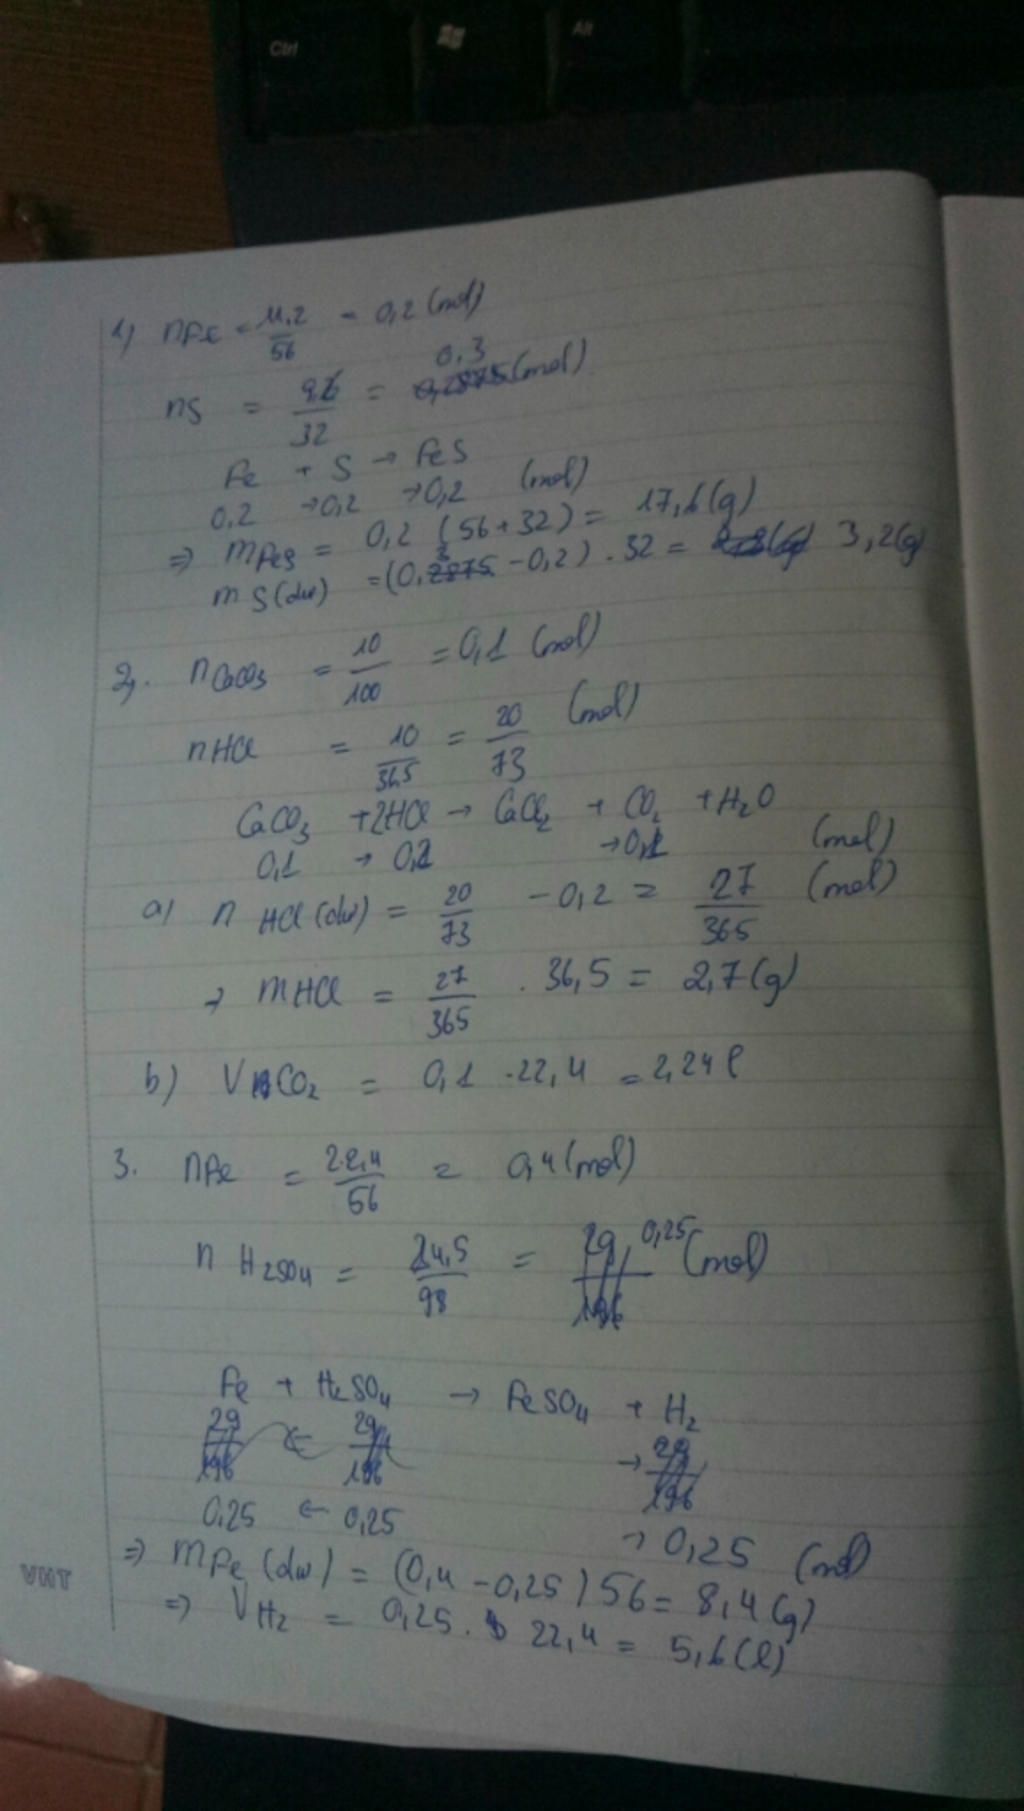 Ctrl
Alt
1) nFe = 11,2/56 = 0,2 (mol)
nS = 9,6/32 = 0,3 (mol)
Fe + S → FeS
0,2 → 0,2 → 0,2 (mol)
⇒ mFeS = 0,2 (56 + 32) = 17,6 (g)
mS(dư) = (0,3 - 0,2) . 32 = 3,2 (g)
2, nCaCO3 = 10/100 = 0,1 (mol)
nHCl = 10/36,5 = 20/73 (mol)
CaCO3 + 2HCl → CaCl2 + CO2 + H2O
0,1 → 0,2 → 0,1 (mol)
a) n HCl (dư) = 20/73 - 0,2 = 27/365 (mol)
→ mHCl = 27/365 . 36,5 = 2,7 (g)
b) V CO2 = 0,1 . 22,4 = 2,24 l
3. nFe = 22,4/56 = 0,4 (mol)
n H2SO4 = 24,5/98 = 0,25 (mol)
Fe + H2SO4 → FeSO4 + H2
29/196 ← 29/196 → 29/196
0,25 ← 0,25 → 0,25 (mol)
⇒ mFe (dư) = (0,4 - 0,25) 56 = 8,4 (g)
⇒ VH2 = 0,25 . 22,4 = 5,6 (l)
VHT